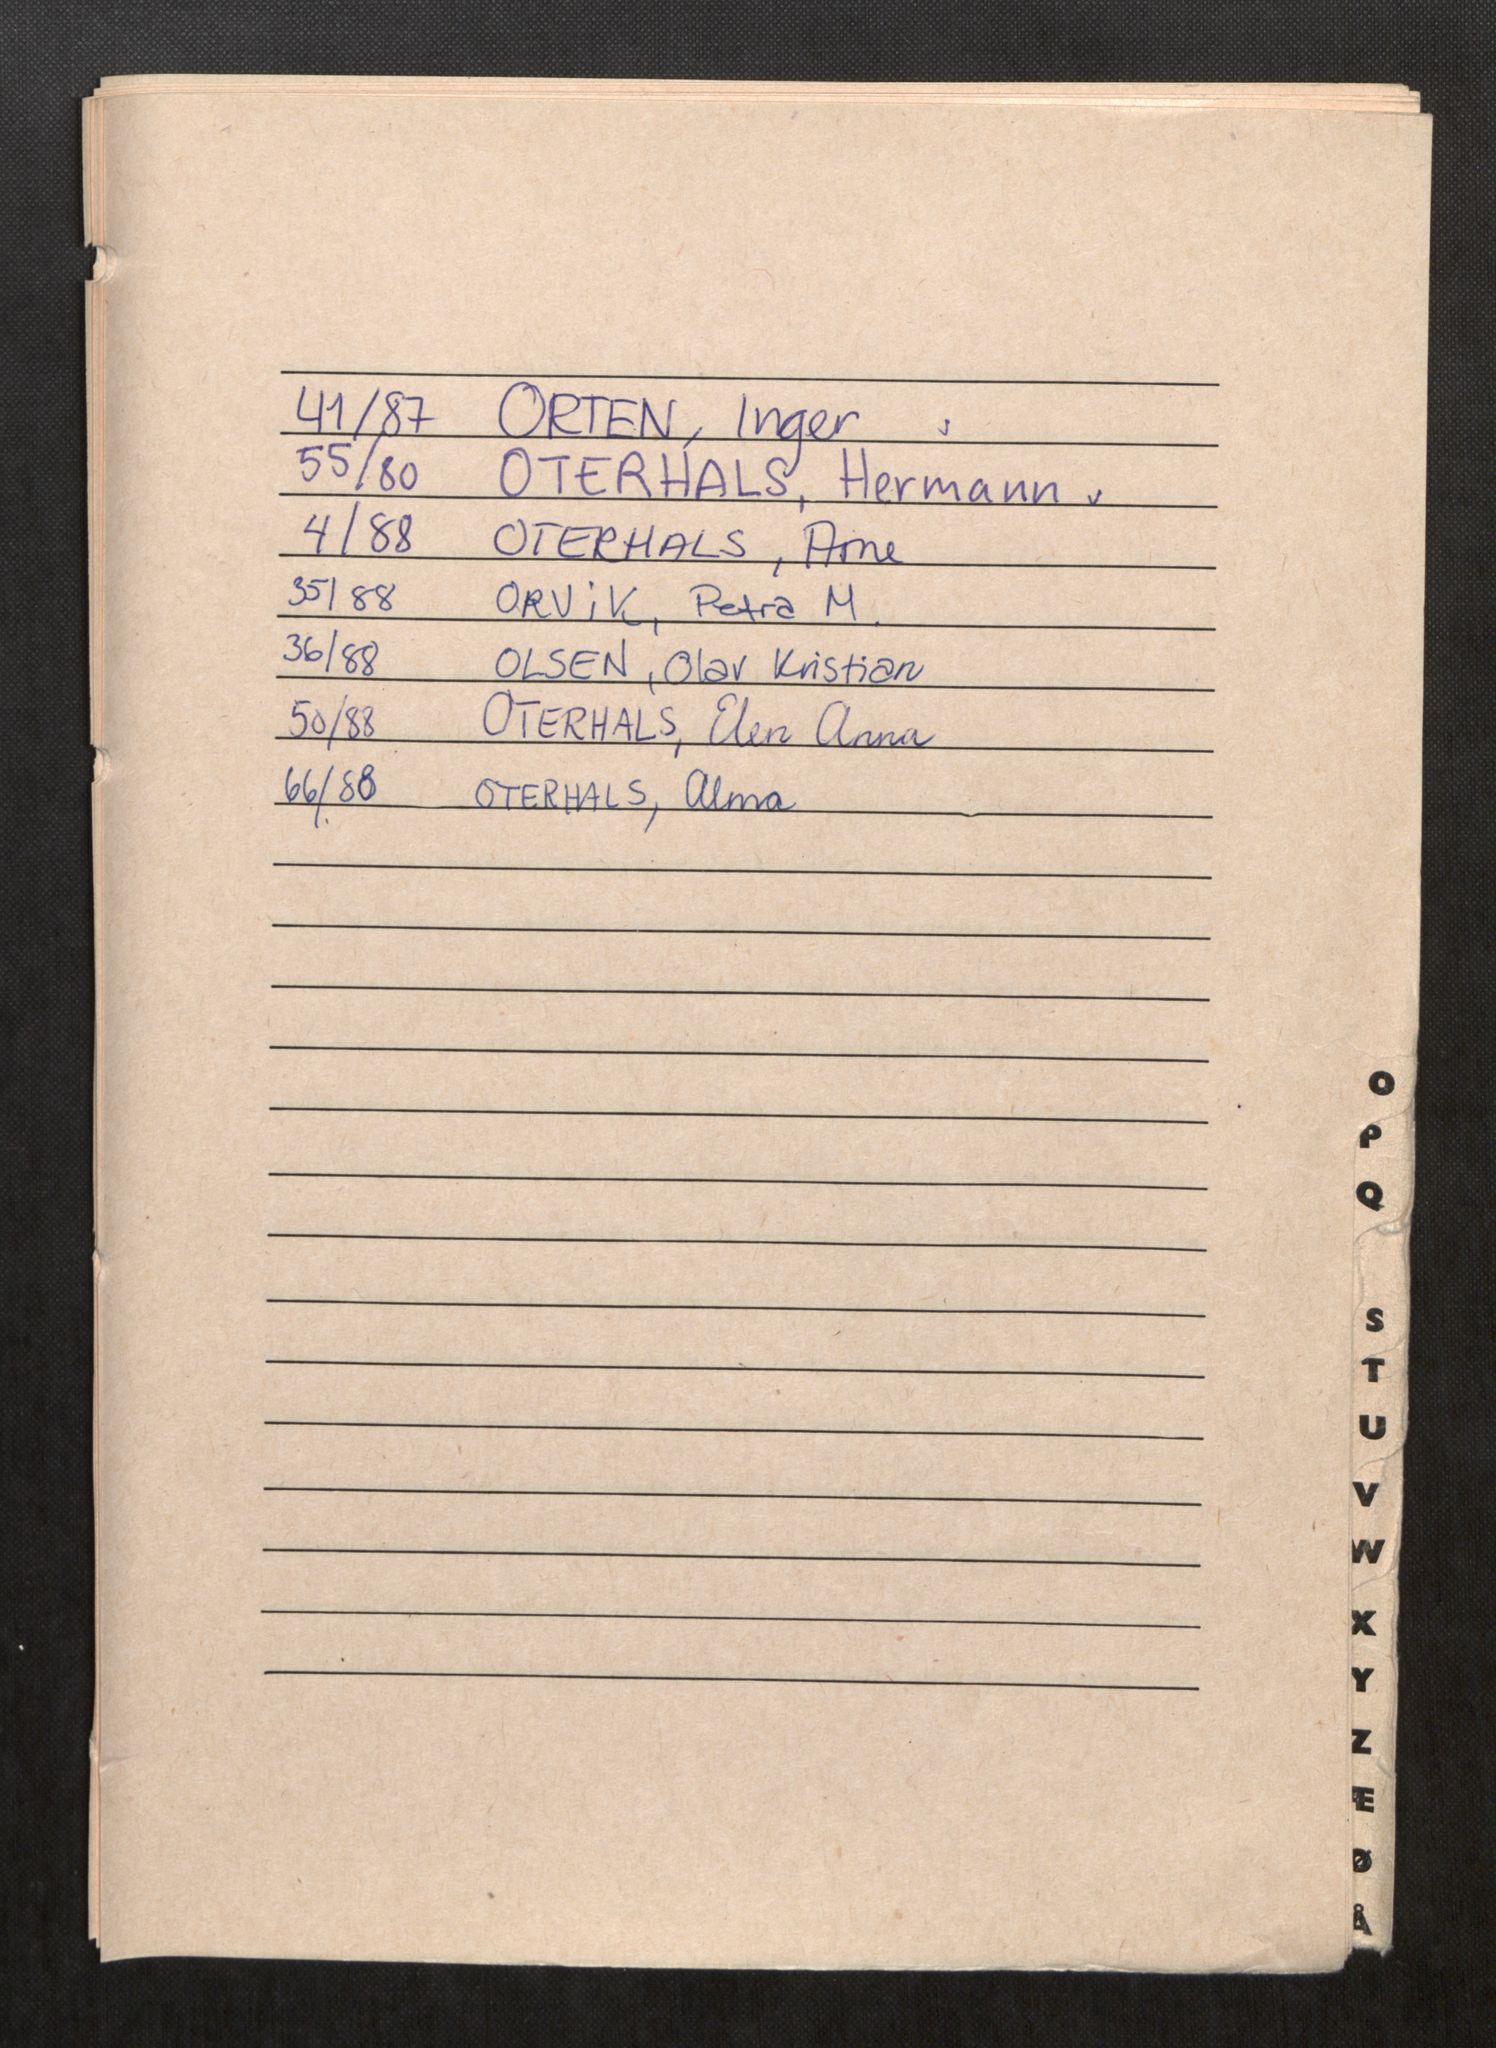 41/87 ORTEN, Inger
55/80 OTERHALS, Hermann
4/88 OTERHALS, Arne
35/88 ORVIK, Petra M.
36/88 OLSEN, Olav Kristian
50/88 OTERHALS, Elen Anna
66/88 OTERHALS, Alma
O
P
Q
S
T
U
V
W
X
Y
Z
Æ
Ø
Å